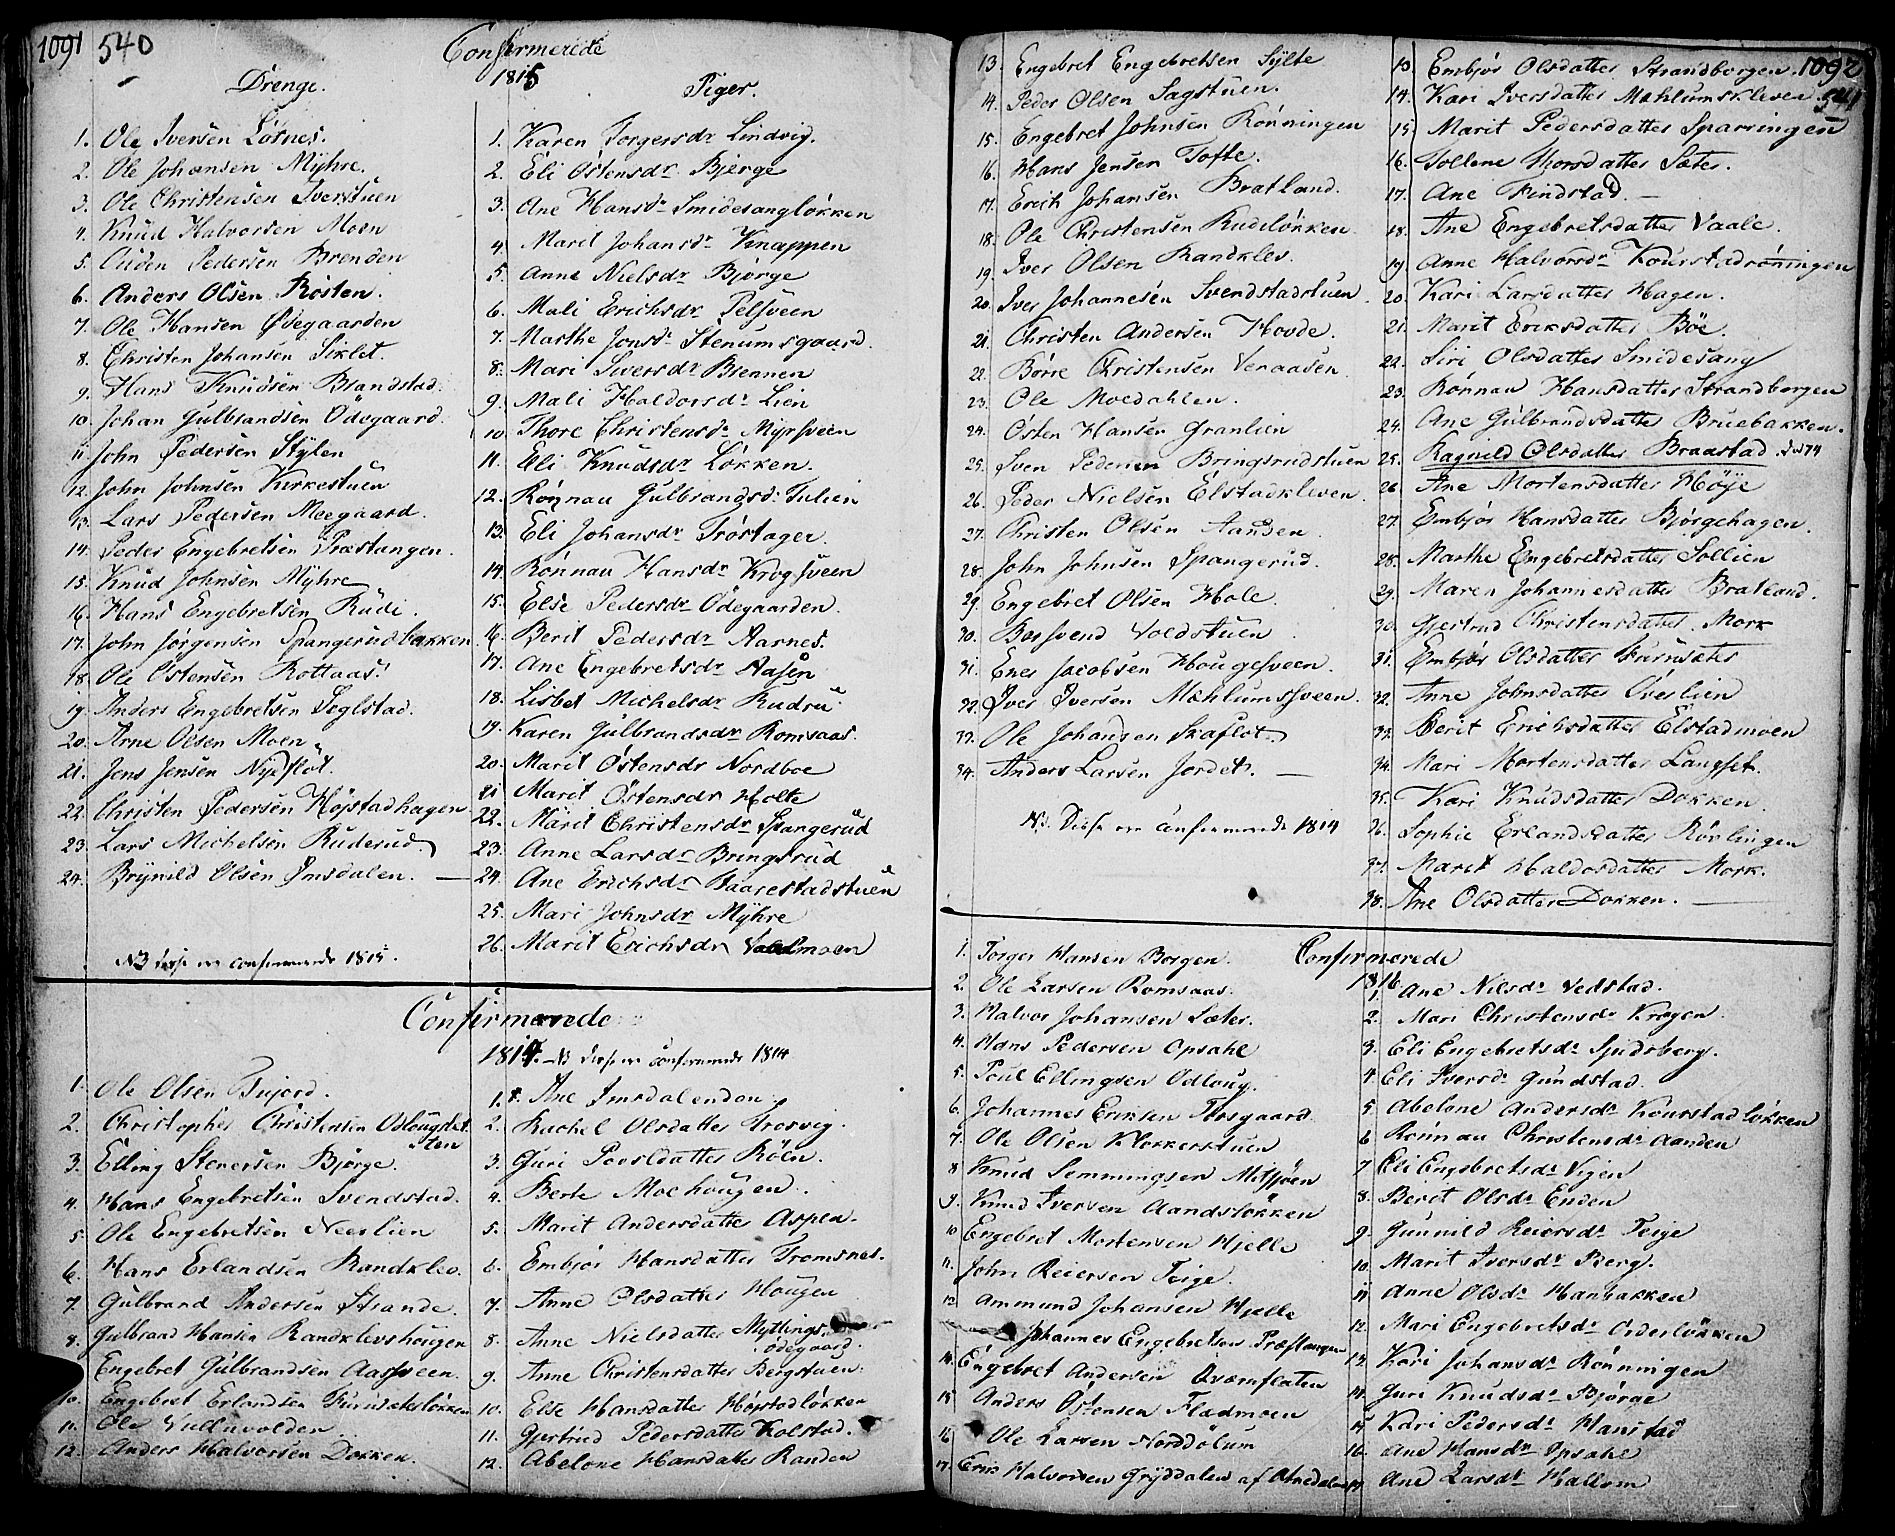 1091 540
Confirmerede
1815
Drenge.
1. Ole Iversen Losnes.
2. Ole Johansen Myhre.
3. Ole Christensen Iverstuen
4. Knud Halvorsen Moen
5. Auden Pedersen Brenden
6. Anders Olsen Rosten.
7. Ole Hansen Ødegaarden
8. Christen Johansen Siklet.
9. Hans Knudsen Brandstad.
10. Johan Gulbrandsen Ödegaard.
11. John Pedersen Stylen
12. John Johnsen Kirkestuen
13. Lars Pedersen Moegaard.
14. Peder Engebretsen Præstangen.
15. Knud Johnsen Myhre
16. Hans Engebretsen Rudi.
17. John Jörgensen Spangerudbakken
18. Ole Östensen Rottaas.
19. Anders Engebretsen Seglstad.
20. Arne Olsen Moen
21. Jens Jensen Nyeflot.
22. Christen Pedersen Höistadhagen
23. Lars Michelsen Ruderud.
24. Brynild Olsen Imsdalen.
NB disse ere confirmerede 1815.
Piger.
1. Karen Torgersdr Lindvig.
2. Eli Östensdr Bjerge
3. Ane Hansdr Smidesangløkken
4. Marit Johansdr Knappen
5. Anne Nielsdr Bjørge
6. Mali Erichsdr Pelsveen
7. Marthe Jonsdr Stenumsgaard.
8. Mari Siversdr Brennen
9. Mali Haldorsdr Lien
10. Thore Christensdr Myrsveen
11. Eli Knudsdr Løkken.
12. Rønnau Gulbrandsdr Julien
13. Eli Johansdr Trostager.
14. Rønnau Hansdr Krogsveen
15. Else Pedersdr Ödegaarden.
16. Berit Pedersdr Aarnes.
17. Ane Engebretsdr Aasen
18. Lisbet Michelsdr Rudru
19. Karen Gulbrandsdr Romsaas.
20. Marit Östensdr Nordboe
21 Marit Östensdr Holte
22. Marit Christensdr Spangerud
23. Anne Larsdr Bringsrud
24. Ane Erichsdr Baarestadstuen
25. Mari Johnsdr Myhre
26. Marit Erichsdr Vaalmoen
Confirmerede
1814. NB disse ere confirmerede 1814
1. Ole Olsen Tujord.
2. Christopher Christensen Odlougslet
sten
3. Elling Stenersen Bjørge.
4. Hans Engebretsen Svendstad.
5. Ole Engebretsen Neerlien
6. Hans Erlandsen Randklev.
7. Gulbrand Andersen Strande.
8. Gulbrand Hansen Randklevshougen
Engebret Gulbrandsen Aassveen.
10. Engebret Erlandsen Furusæterløkken
11. Ole Vullnvolden
12. Anders Halvorsen Dokken.
1. Ane Imsdalendon
2. Rachel Olsdatter Trosvig.
3. Guri Povlsdatter Röen.
4. Berte Moehougen.
5. Marit Andersdatter Aspen.
6. Embjör Hansdatter Tromsnes.
7. Anne Olsdatter Hougen
8. Anne Nielsdatter Myttings
ödegaard.
9. Anne Christensdatter Bergstuen.
10. Else Hansdatter Høistadløkken
11. Gjertrud Pedersdatter Kolstad.
12. Abelone Hansdatter Randen
13. Engebret Engebretsen Sylte
14. Peder Olsen Sagstuen.
15. Engebret Johnsen Rønningen
16. Hans Jensen Tofte.
17. Erich Johansen Bratland.
18. Ole Christensen Rudiløkken
19. Iver Olsen Randklev.
20. Iver Johannesen Svendstadstuen
21. Christen Andersen Hovde.
22. Børre Christensen Venaasen
23. Ole Moedahlen.
24. Østen Hansen Granlien
25. Sven Pedersen Bringsrudstuen
26. Peder Nielsen Elstadkleven
27. Christen Olsen Aanden
28. John Johnsen Spangerud.
29. Engebret Olsen Hole.
30. Bersvend Voldstuen
31. Enes Jacobsen Hougesveen.
32. Iver Iversen Mæhlumssveen.
33. Ole Johansen Skaflot.
34. Anders Larsen Jordet.
NB. Disse ere confirmerede 1814
1092
541
13. Embjør Olsdatter Strandborgen
14. Kari Iversdatter Mæhlumskleven
15. Marit Pedersdatter Sparringen
16. Gollene Thorsdatter Sæter.
17. Ane Findstad.
18. Ane Engebretsdatter Vaale.
19. Anne Halvorsdr Kourstadröningen
20. Kari Larsdatter Hagen.
21. Marit Eriksdatter Böe.
22. Siri Olsdatter Smidesang
23. Rønnau Hansdatter Strandborgen
24. Ane Gulbrandsdatter Bruebakken.
25. Ragnild Olsdatter Braastad.
26. Ane Mortensdatter Höye
27. Embjør Hansdatter Bjørgehagen.
28. Marthe Engebretsdatter Sollien
29. Maren Johannesdatter Bratland.
30. Gjertrud Christensdatter Mork
31. Embjør Olsdatter Furusæter
32. Anne Johnsdatter Overlien
33. Berit Erichsdatter Elstadmoen
34. Mari Mortensdatter Langset.
35. Kari Knudsdatter Dokken.
36. Sophie Erlandsdatter Røvlingen
37. Marit Haldorsdatter Mork.
38. Ane Olsdatter Dokken.
Confirmerede
1816
1. Torger Hansen Borgen.
2. Ole Larsen Romsaas.
3. Halvor Johansen Sæter.
4. Hans Pedersen Opsahl
5. Poul Ellingsen Odloug.
6. Johannes Eriksen Forsgaard
7. Ole Olsen Klokkerstuen
8 Knud Semmingsen Mitsjøen
9. Knud Iversen Aandsløkken
10 Engebret Mortensen Hjelle
11. John Reiersen Teige.
12 Ammund Johansen Hjelle
Johannes Engebretsen Præstangen
14. Engebret Andersen Qværnflaten
15 Anders Østensen Fladmoen
16 Ole Larsen Norddølum
17. Erik Halvorsen Gryddalen af Atnedalen
1. Ane Nilsdr Vedstad.
2. Mari Christensdr Krogen
3. Eli Engebretsdr Sjudsberg.
4. Eli Iversdr Gundstad.
5 Abelone Andersdr Kourstadløkken
6 Rønnau Christensdr Aanden
7 Eli Engebretsdr Vigen
8. Beret Olsdr Enden
9. Gunnild Reiersdr Teige
10. Marit Iversdr Berg.
11 Anne Olsdr Hanbakken
12. Mari Engebretsdr Orderløkken
13. Kari Johansdr Rønningen
14. Guri Knudsdr Bjørge
15 Kari Pedersdr Hanstad
16. Ane Hansdr Opsahl
17 Ane Larsdr Hallom